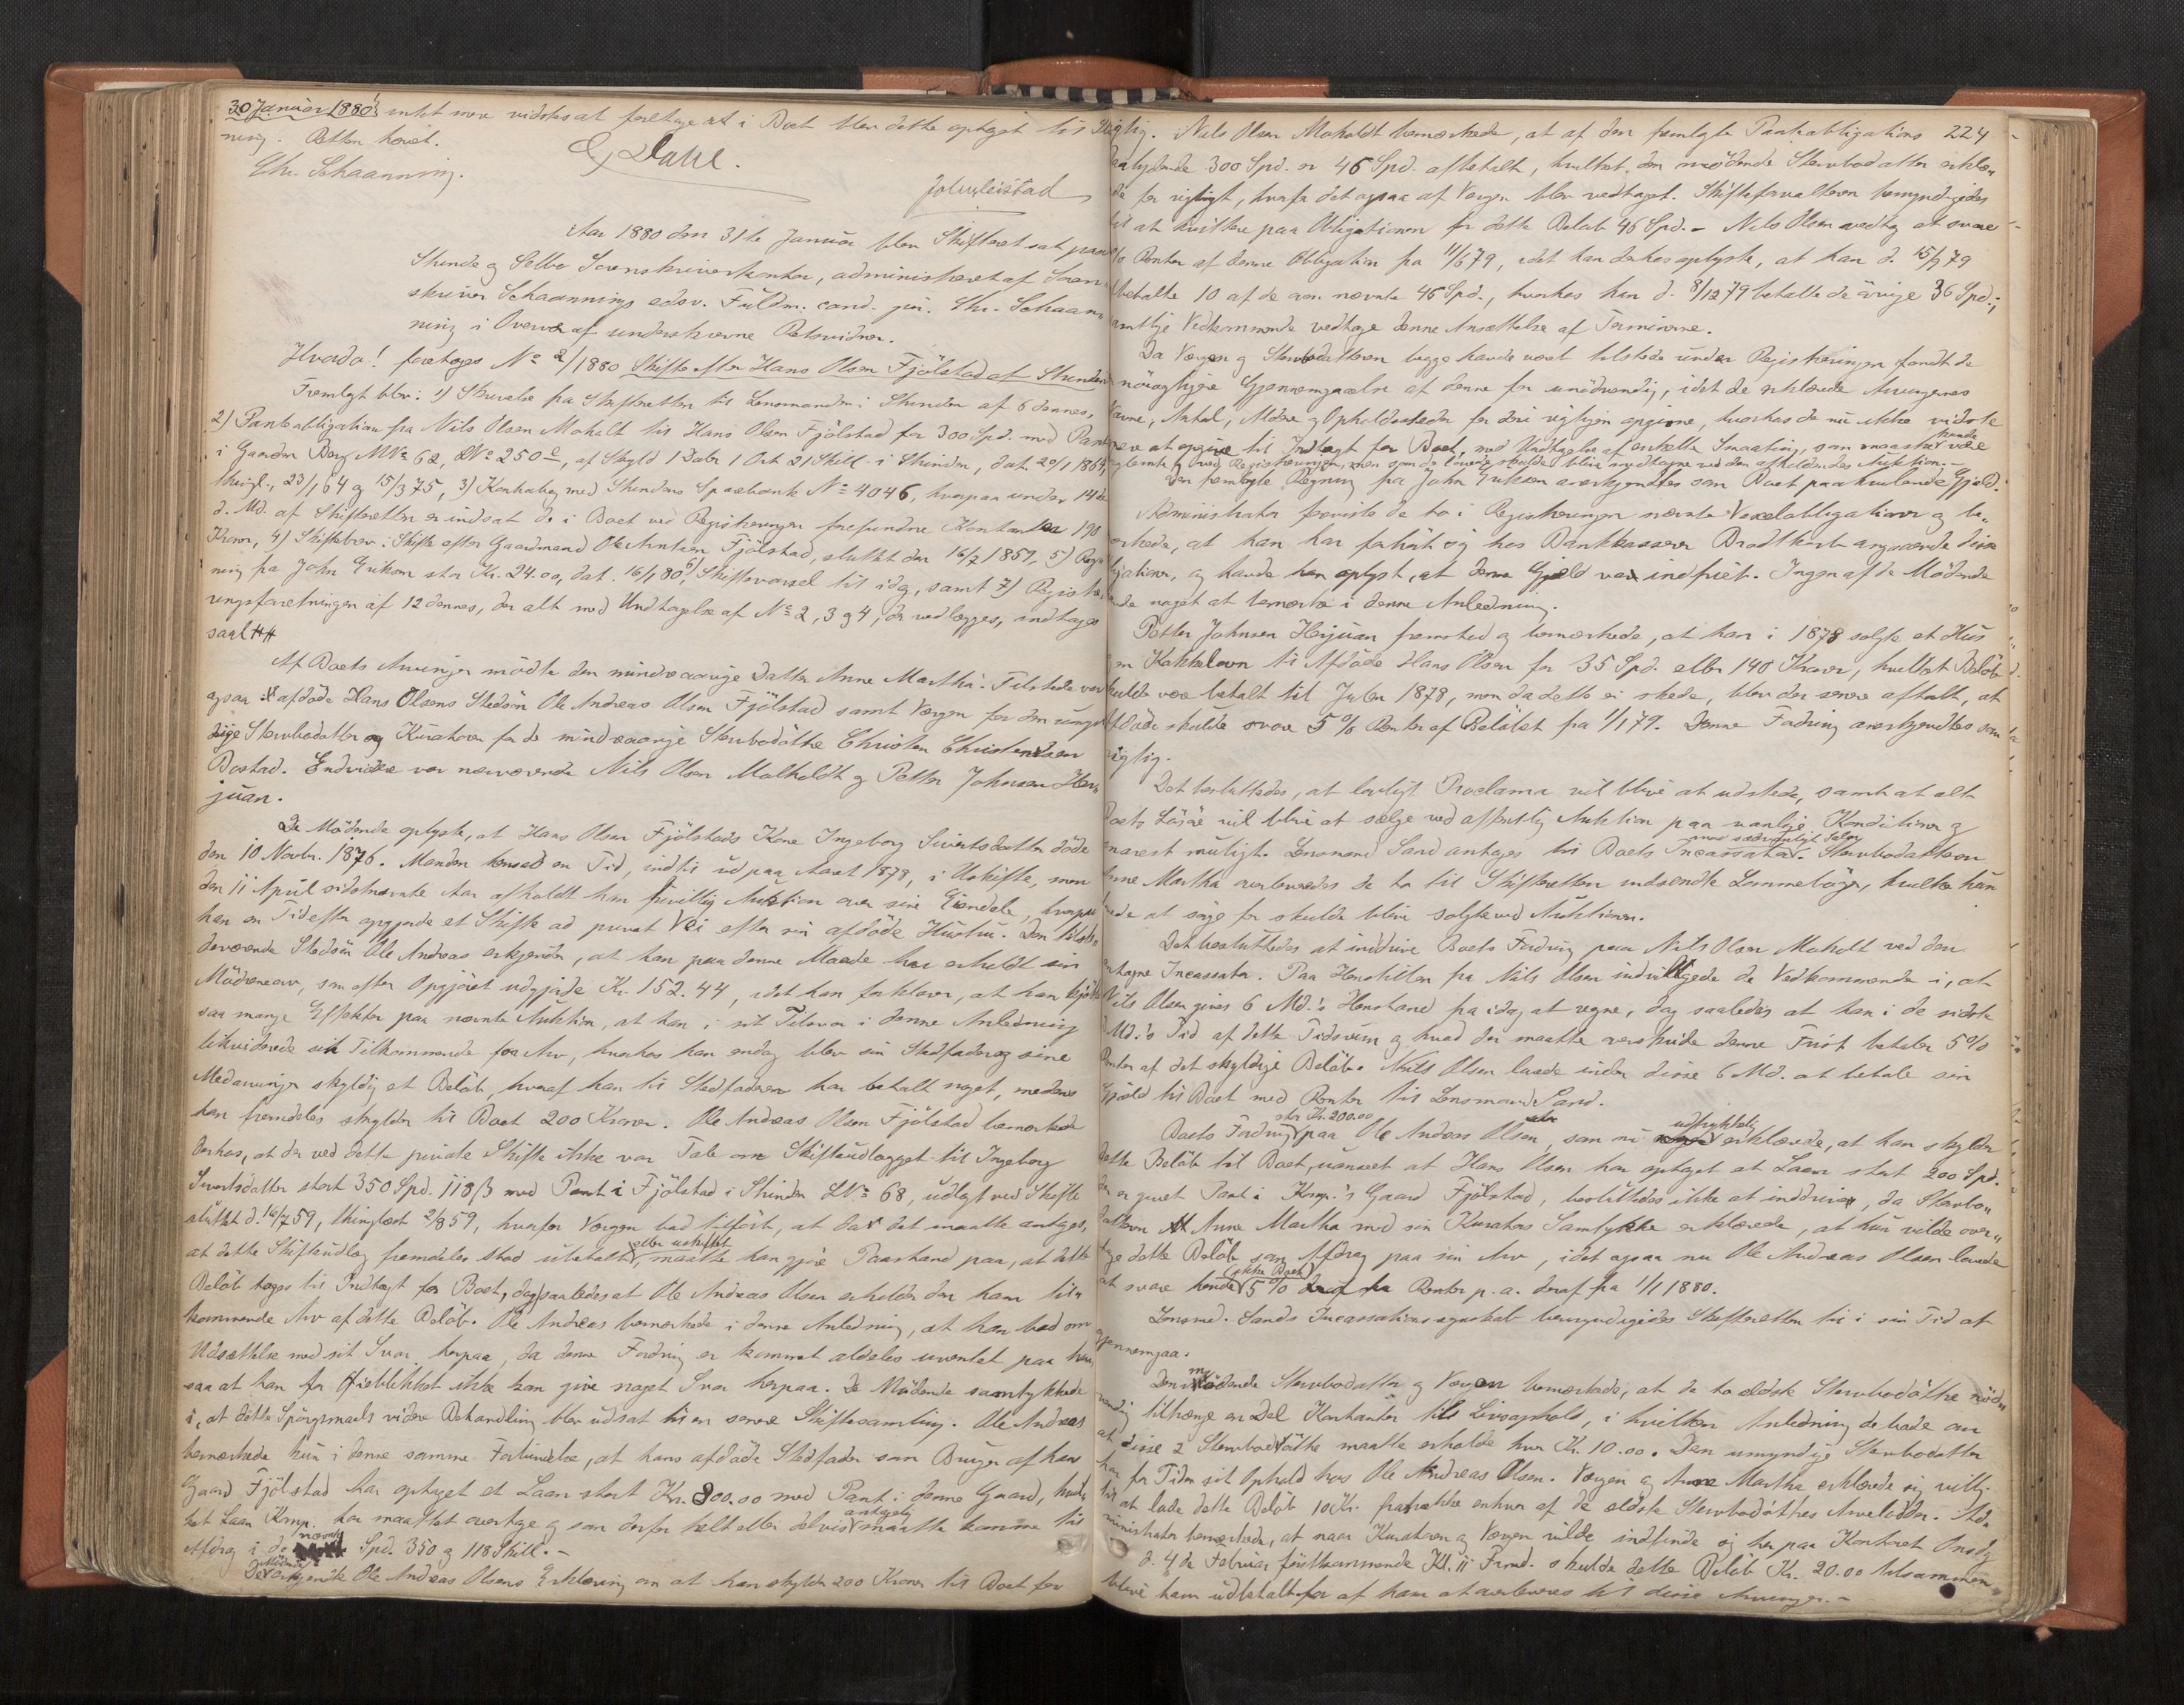 30 Januar 1880.
intet mere vidstes at foretage i Boet blev dette optaget til
ning. Retten hævet.
Chr. Schaanning. E Dahl.
Johs Leistad
Aar 1880 den 31te Januar blev Skifteret sat paa
Strinde og Selbo Sorenskriverkontor, administreret af Soren-
skriver Schaannings edsv. Fuldm. cand. jur. Chr. Schaan-
ning i Overvær af underskrevne Retsvidner.
Hvorda! foretoges No 2/1880 Skifte efter Hans Olsen Fjölstad af Strinden
Fremlagt blev: 1) Skrivelse fra Skifteretten til Lensmanden i Strinden af 6 dennes,
2) Pantobligation fra Nils Olsen Moholt til Hans Olsen Fjölstad for 300 Spd. med Pant
i Gaarden Berg MNo 62, LNo 250c, af Skyld 1 Daler 1 Ort 21 Skill. i Strinden, dat. 20/1 1864,
thingl. 23/1 64 og 15/3 75, 3) Kontrabog med Strindens Sparebank No 4046, hvorpaa under 14de
d. Md. af Skifteretten er indsat de i Boet ved Registreringen forefundne Kontanter 190
Kroner, 4) Skiftebrev i Skifte efter Gaardmand Ole Arntsen Fjölstad, sluttet den 16/7 1859, 5) Reg-
ning fra John Eriksen stor Kr. 24.00, dat. 16/1 80, 6) Skiftevarsel til idag, samt 7) Registre-
ringsforretningen af 12 dennes, der alt med Undtagelse af No 2, 3 og 4, der vedlægges, indtages
saal.
Af Boets Arvinger mödte den mindreaarige Datter Anne Martha. Tilstede var
ogsaa afdöde Hans Olsens Stedsön Ole Andreas Olsen Fjölstad samt Værgen for den umyn-
dige Stervbodatter og Kurator for de mindreaarige Stervbodöttre Christen Christensen
Bostad. Endvidere var nærværende Nils Olsen Moholdt og Petter Johnsen Her-
juan.
De Mödende oplyste, at Hans Olsen Fjölstads Kone Ingeborg Sivertsdatter döde
den 10 Novbr. 1876. Manden hensad en Tid, indtil ud paa Aaret 1878, i Uskifte, men
den 11 April sidstnævnte Aar afholdt han frivillig Auktion over sine Eiendele, hvorpaa
han en Tid efter opgjorde et Skifte ad privat Vei efter sin afdöde Hustru. Den tilste-
deværende Stedsön Ole Andreas erkjender, at han paa denne Maade har erholdt sin
Mödrenearv, som efter Opgjöret udgjorde Kr. 152.44, idet han forklarer, at han kjöbte
saa mange Effekter paa nævnte Auktion, at han i sit Tilsvar i denne Anledning
likviderede sit Tilkommende for Arv, hvorhos han endog blev sin Stedfader og sine
Medarvinger skyldig et Belöb, hvoraf han til Stedfaderen har betalt noget, medens
han fremdeles skylder til Boet 200 Kroner. Ole Andreas Olsen Fjölstad bemærkede
derhos, at der ved dette private Skifte ikke var Tale om Skifteudlægget til Ingeborg
Sivertsdatter stort 350 Spd. 118 ß med Pant i Fjölstad i Strinden LNo 68, udlagt ved Skifte
sluttet d. 16/7 59, thinglæst 2/8 59, hvorfor Værgen bad tilfört, at da det maatte antages,
at dette Skifteudlæg fremdeles stod ubetalt eller uskiftet, maatte han gjöre Paastand paa, at dette
Belöb toges til Indtægt for Boet, dog saaledes at Ole Andreas Olsen erholder den ham til-
kommende Arv af dette Belöb. Ole Andreas bemærkede i denne Anledning, at han bad om
Udsættelse med sit Svar herpaa, da denne Fordring er kommet aldeles uventet paa ham
saa at han for Öieblikket ikke kan give noget Svar herpaa. De Mödende samtykkede
i, at dette Spörgsmaals videre Behandling blev udsat til en senere Skiftesamling. Ole Andreas
bemærkede kun i denne samme Forbindelse, at hans afdöde Stedfader som Bruger af hans
Gaard Fjölstad har optaget et Laan stort Kr. 800.00 med Pant i denne Gaard, hvil-
ket Laan Komp. har maattet overtage og som derfor helt eller delvis antagelig maatte komme til
Afdrag i de nævnte Spd. 350 og 118 Skill.-
De Mödende erkjendte Ole Andreas Olsens Erklæring om at han skylder 200 Kroner til Boet for
rigtig. Nils Olsen Moholdt bemærkede, at af den fremlagte Pantobligations 224
paalydende 300 Spd. er 46 Spd. afbetalt, hvilket den mödende Stervbodatter erklæ-
rede for rigtigt, hvorfor det ogsaa af Værgen blev vedtaget. Skifteforvalteren bemyndigedes
til at kvittere paa Obligationen for dette Belöb 46 Spd. - Nils Olsen vedtog at svare
Renter af denne Obligation fra 11/6 79, idet han derhos oplyste, at han d. 15/9 79
betalte 10 af de ovennævnte 46 Spd., hvorhos han d. 8/12 79 betalte de övrige 36 Spd.;
samtlige Vedkommende vedtoge denne Ansættelse af Terminerne.
Da Værgen og Stervbodatteren begge havde været tilstede under Registreringen fandt de
nöiagtigere Gjennemgaaelse af denne for unödvendig, idet de erklærede Arvingernes
Navne, Antal, Aldre og Opholdssteder for deri rigtigen opgivne, hvorhos de nu ikke vidste
mere at opgive til Indtægt for Boet, med Undtagelse af enkelte Smaating, som maaske kunde være
glemte ved Registreringen, men som da lovedes skulde blive medtagne ved den afholdendes Auktion.-
Den fremlagte Regning fra John Eriksen anerkjendtes som Boet paahvilende Gjæld.
Administrator foreviste de to i Registreringen nævnte Vexelobligationer og be-
mærkede, at han har forhört sig hos Bankkasserer Brodtkorb angaaende disse
Obligationer, og havde han oplyst, at denne Gjæld var indfriet. Ingen af de Mödende
havde noget at bemærke i denne Anledning.
Petter Johnsen Herjuan fremstod og bemærkede, at han i 1878 solgte et Hus
en Kakkelovn til Afdöde Hans Olsen for 35 Spd. eller 140 Kroner, hvilket Belöb
skulde være betalt til Julen 1878, men da dette ei skede, blev der senere aftalt, at
Afdöde skulde svare 5 % Renter af Belöbet fra 1/1 79. Denne Fordring anerkjendtes som
rigtig.
Det besluttedes, at lovligt Proclama vil blive at udstede, samt at alt
Boets Lösöre vil blive at sælge ved offentlig Auktion paa vanlige Konditioner og
snarest muligt. Lensmand Sand antages til Boets Incassator med sædvanligt Salær. Stervbodatteren
Anne Martha overleveredes de to til Skifteretten indsendte Lommeböger, hvilke hun
lovede at sörge for skulde blive solgte ved Auktionen.
Det besluttedes at inddrive Boets Fordring paa Nils Olsen Moholt ved den
antagne Incassator. Paa Henstillen fra Nils Olsen indvilligede de Vedkommende i, at
Nils Olsen gives 6 Md.'s Henstand fra idag at regne, dog saaledes at han i de sidste
Md.'s Tid af dette Tidsrum og hvad der maatte overskride denne Frist betaler 5 %
Renter af det skyldige Belöb. Nils Olsen lovede inden disse 6 Md. at betale sin
Gjæld til Boet med Renter til Lensmand Sand.
Boets Fordring stor Kr. 200.00 paa Ole Andreas Olsen, som nu udtrykkelig erklærede, at han skylder
dette Belöb til Boet, uanseet at Hans Olsen har optaget et Laan stort 200 Spd.
der er givet Pant i Komp.'s Gaard Fjölstad, besluttedes ikke at inddrives, da Stervbo-
datteren Anne Martha med sin Kurators Samtykke erklærede, at hun vilde over-
tage dette Belöb som Afdrag paa sin Arv, idet ogsaa nu Ole Andreas Olsen lovede
at svare hende (ikke Boet) 5 % Renter p. a. deraf fra 1/1 1880.
Lensmd. Sands Incassationsregnskab bemyndigedes Skifteretten til i sin Tid at
gjennemgaa.
Den mödende Stervbodatter og Værgen bemærkede, at de to ældste Stervbodöttre nöd-
vendig tiltrænge en Del Kontanter til Livsophold, i hvilken Anledning de bade om
at disse 2 Stervbodöttre maatte erholde hver Kr. 10.00. Den umyndige Stervbodatter
har for Tiden sit Ophold hos Ole Andreas Olsen. Værgen og Anne Martha erklærede sig villig
til at lade dette Belöb 10 Kr. fratrække enhver af de ældste Stervbodöttres Arvelodder. Ad-
ministrator bemærkede, at naar Kuratoren og Værgen vilde indfinde sig her paa Kontoret Onsdag
d. 4de Februar förstkommende Kl. 11 Formd. skulde dette Belöb Kr. 20.00 tilsammen
blive ham udbetalt for af ham at overleveres til disse Arvinger.-